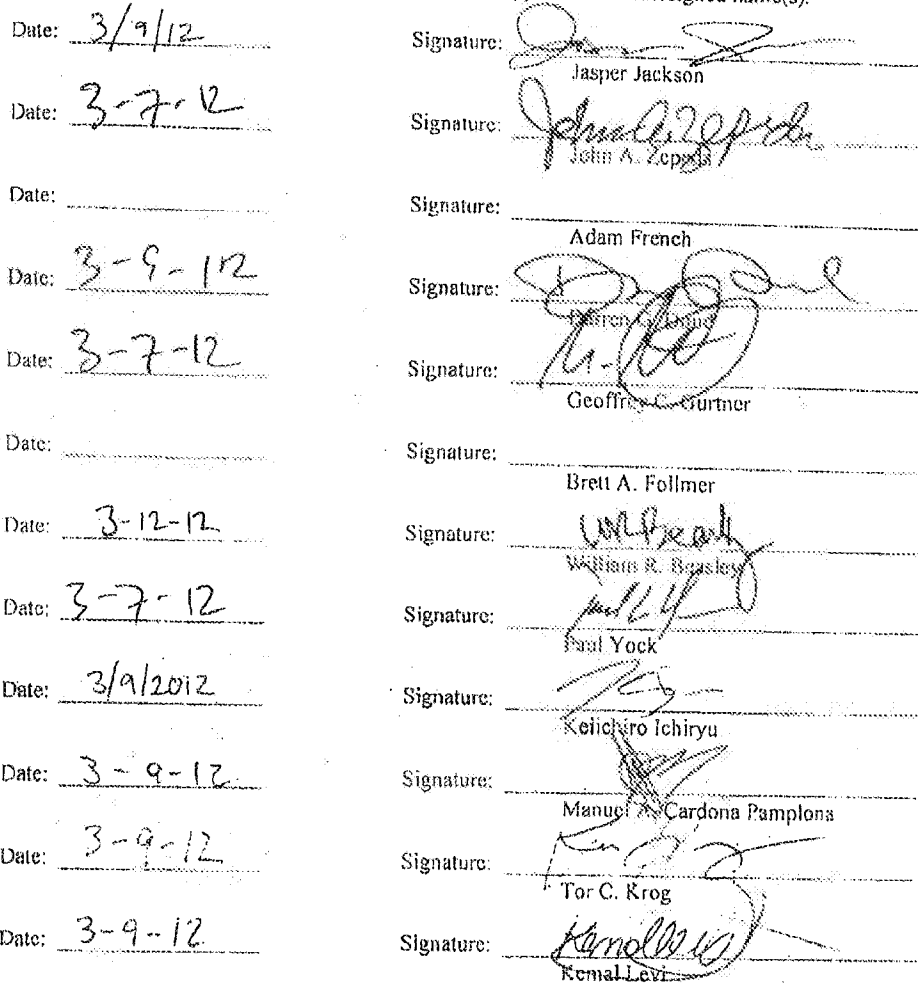 signed name(s).
Date: 3/9/12 Signature:
Jasper Jackson
Date: 3-7-12 Signature: John A. Zepeda
John A. Zepeda
Date: Signature:
Adam French
Date: 3-9-12 Signature:
Geoffrey C. Gurtner
Date: 3-7-12 Signature:
Date: Signature:
Brett A. Follmer
Date: 3-12-12 Signature: WR Beasley
William R. Beasley
Date: 3-7-12 Signature:
Paul Yock
Date: 3/9/2012 Signature:
Keiichiro Ichiryu
Date: 3-9-12 Signature:
Manuel A. Cardona Pamplona
Date: 3-9-12 Signature:
Tor C. Krog
Date: 3-9-12 Signature: Kemal Levi
Kemal Levi